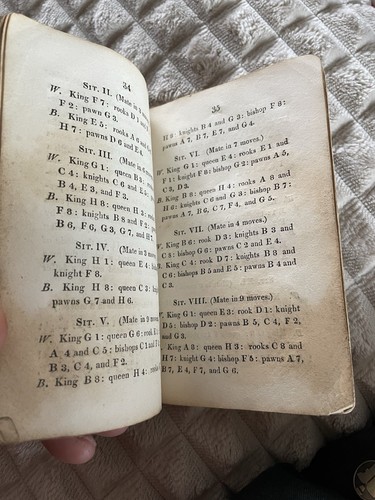 34
SIT. II. (Mate in
W. King F 7: rooks D
F 2: pawn G 3.
B. King E 5: rooks A 6
H 7: pawns D 6 and E 4.
SIT. III. (Mate in
W. King G 1: queen B 3:
C 4: knights C 6 and E
B 4, E 3, and F 3.
B. King H 8: queen H 3:
F 8: knights B 8 and F
B 6, F 6, G 3, G 7, and H
SIT. IV. (Mate in
W. King H 1: queen E 4:
knight F 8.
B. King H 8: queen C 3:
pawns G 7 and H 6.
SIT. V. (Mate in
W. King G 1: queen G 6: rook
A 4 and C 5: bishops C 1 and
B 3, C 4, and F 2.
B. King B 8: queen H 4:
35
H 8: knights B 4 and G 3: bishop F 8:
pawns A 7, B 7, E 7, and G 4.
SIT. VI. (Mate in 7 moves.)
W. King G 1: queen E 4: rooks E 1 and
F 1: knight F 8: bishop G 2: pawns A 5,
C 3, D 3.
B. King B 8: queen H 4: rooks A 8 and
H 6: knights C 6 and G 3: bishop B 7:
pawns A 7, B 6, C 7, F 4, and G 5.
SIT. VII. (Mate in 4 moves.)
W. King B 6: rook D 3: knights B 3 and
C 3: bishop G 6: pawns C 2 and E 4.
B. King C 4: rook D 7: knights B 8 and
C 6: bishops B 5 and E 5: pawns B 4 and
C 3.
SIT. VIII. (Mate in 9 moves.)
W. King G 1: queen E 3: rook D 1: knight
D 5: bishop D 2: pawns B 5, C 4, F 2,
and G 3.
King A 8: queen H 3: rooks C 8 and
H 7: knight G 4: bishop F 5: pawns A 7,
B 7, E 4, F 7, and G 6.